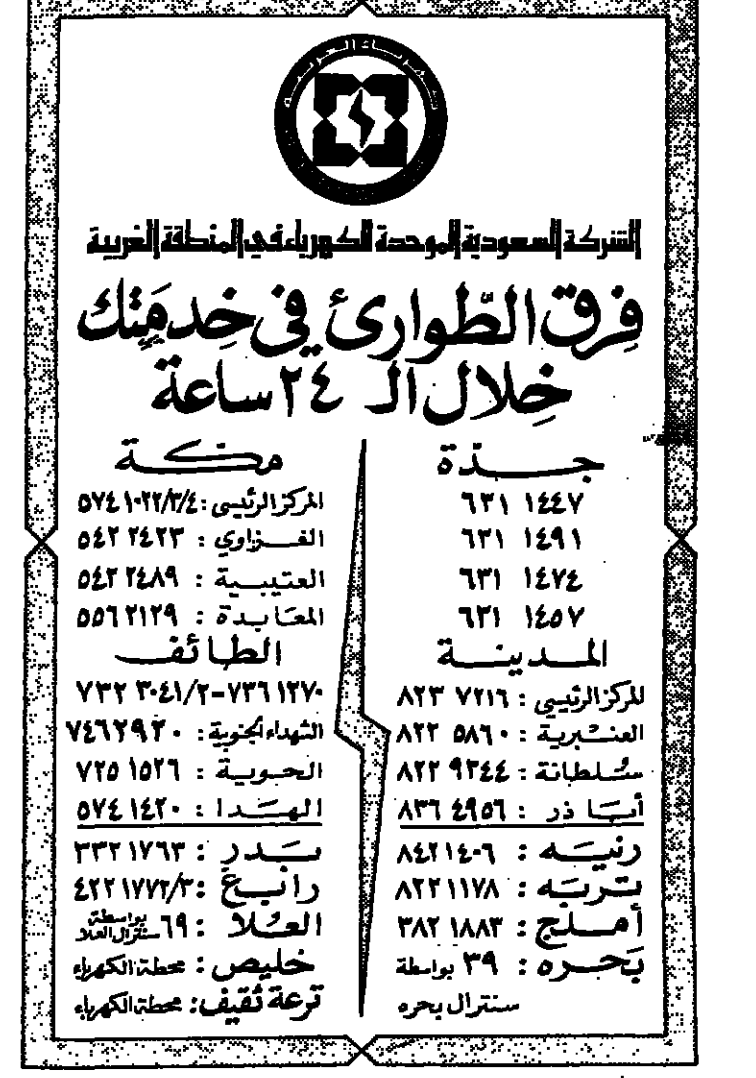 الشركة السعودية الموحدة للكهرباء في المنطقة الغربية
فِرق الطّوارئ في خِدمَتِك
خِلال الـ ٢٤ ساعة
جـــدة
٦٣١ ١٤٤٧
٦٣١ ١٤٩١
٦٣١ ١٤٧٤
٦٣١ ١٤٥٧
المـدينــة
المركز الرئيسي : ٨٢٣ ٧٢١٦
العنبرية : ٨٢٢ ٥٨٦٠
سلطانة : ٨٢٢ ٩٣٤٤
أبا ذر : ٨٣٦ ٤٩٥٦
رنيه : ٨٤٢ ١٤٠٦
تربه : ٨٢٢ ١١٧٨
أملج : ٣٨٢ ١٨٨٣
بَحره : ٣٩ بواسطة
سنترال بحره
مكــة
المركز الرئيسى : ٥٧٤ ١٠٢٢/٣/٤
الفـزاوي : ٥٤٢ ٢٤٢٣
العتيبية : ٥٤٢ ٢٤٨٩
المعابدة : ٥٥٦ ٢١٢٩
الطائف
٧٣٢ ٣٠٤١/٢-٧٣٦ ١٢٧٠
الشهداء الجنوبية : ٧٤٦ ٢٩٢٠
الحوية : ٧٢٥ ١٥٢٦
الهدا : ٥٧٤ ١٤٢٠
بدر : ٣٣٢ ١٧٦٣
رابغ : ٤٢٢ ١٧٧٢/٣
العلا : ٦٩ بواسطة سنترال العلا
خليص : محطة الكهرباء
ترعة ثقيف : محطة الكهرباء